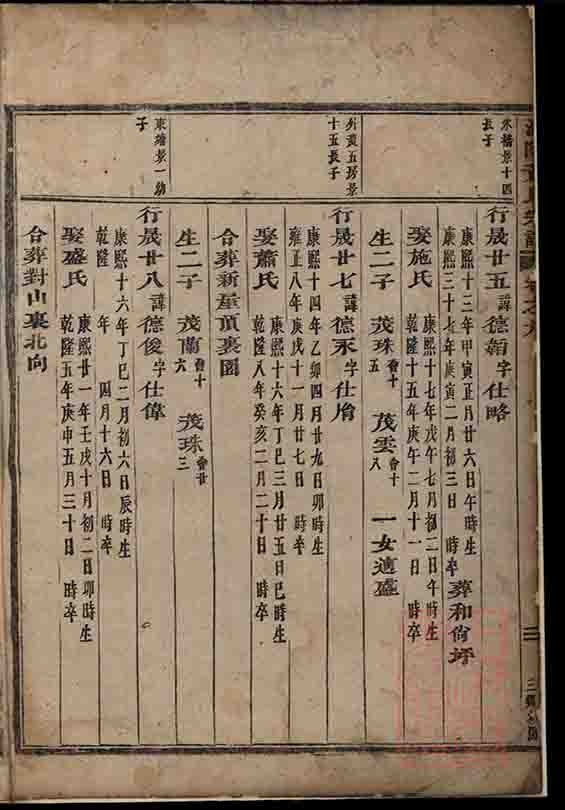 宗譜 卷之九
三
東樓景十四
長子
行晟廿五諱德韜字仕略
康熙十三年甲寅正月廿六日午時生
康熙三十七年庚寅二月初三日 時卒
葬和尚坪
娶施氏
康熙十七年戊午七月初二日午時生
乾隆十五年庚午二月十一日 時卒
生二子 茂珠會十五 茂雲會十八 一女適盛
外黃五塝景
十五長子
行晟廿七諱德永字仕脩
康熙十四年乙卯四月廿九日卯時生
雍正八年庚戌十一月廿七日 時卒
娶蕭氏
康熙十六年丁巳三月廿五日巳時生
乾隆八年癸亥二月二十日 時卒
合葬新屋頂裏園
生二子 茂蘭會十六 茂珠會廿三
東塘景一幼
子
行晟廿八諱德俊字仕偉
康熙十六年丁巳二月初六日辰時生
乾隆 年 四月十六日 時卒
娶盛氏
康熙廿一年壬戌十月初二日卯時生
乾隆五年庚申五月三十日 時卒
合葬對山裏北向